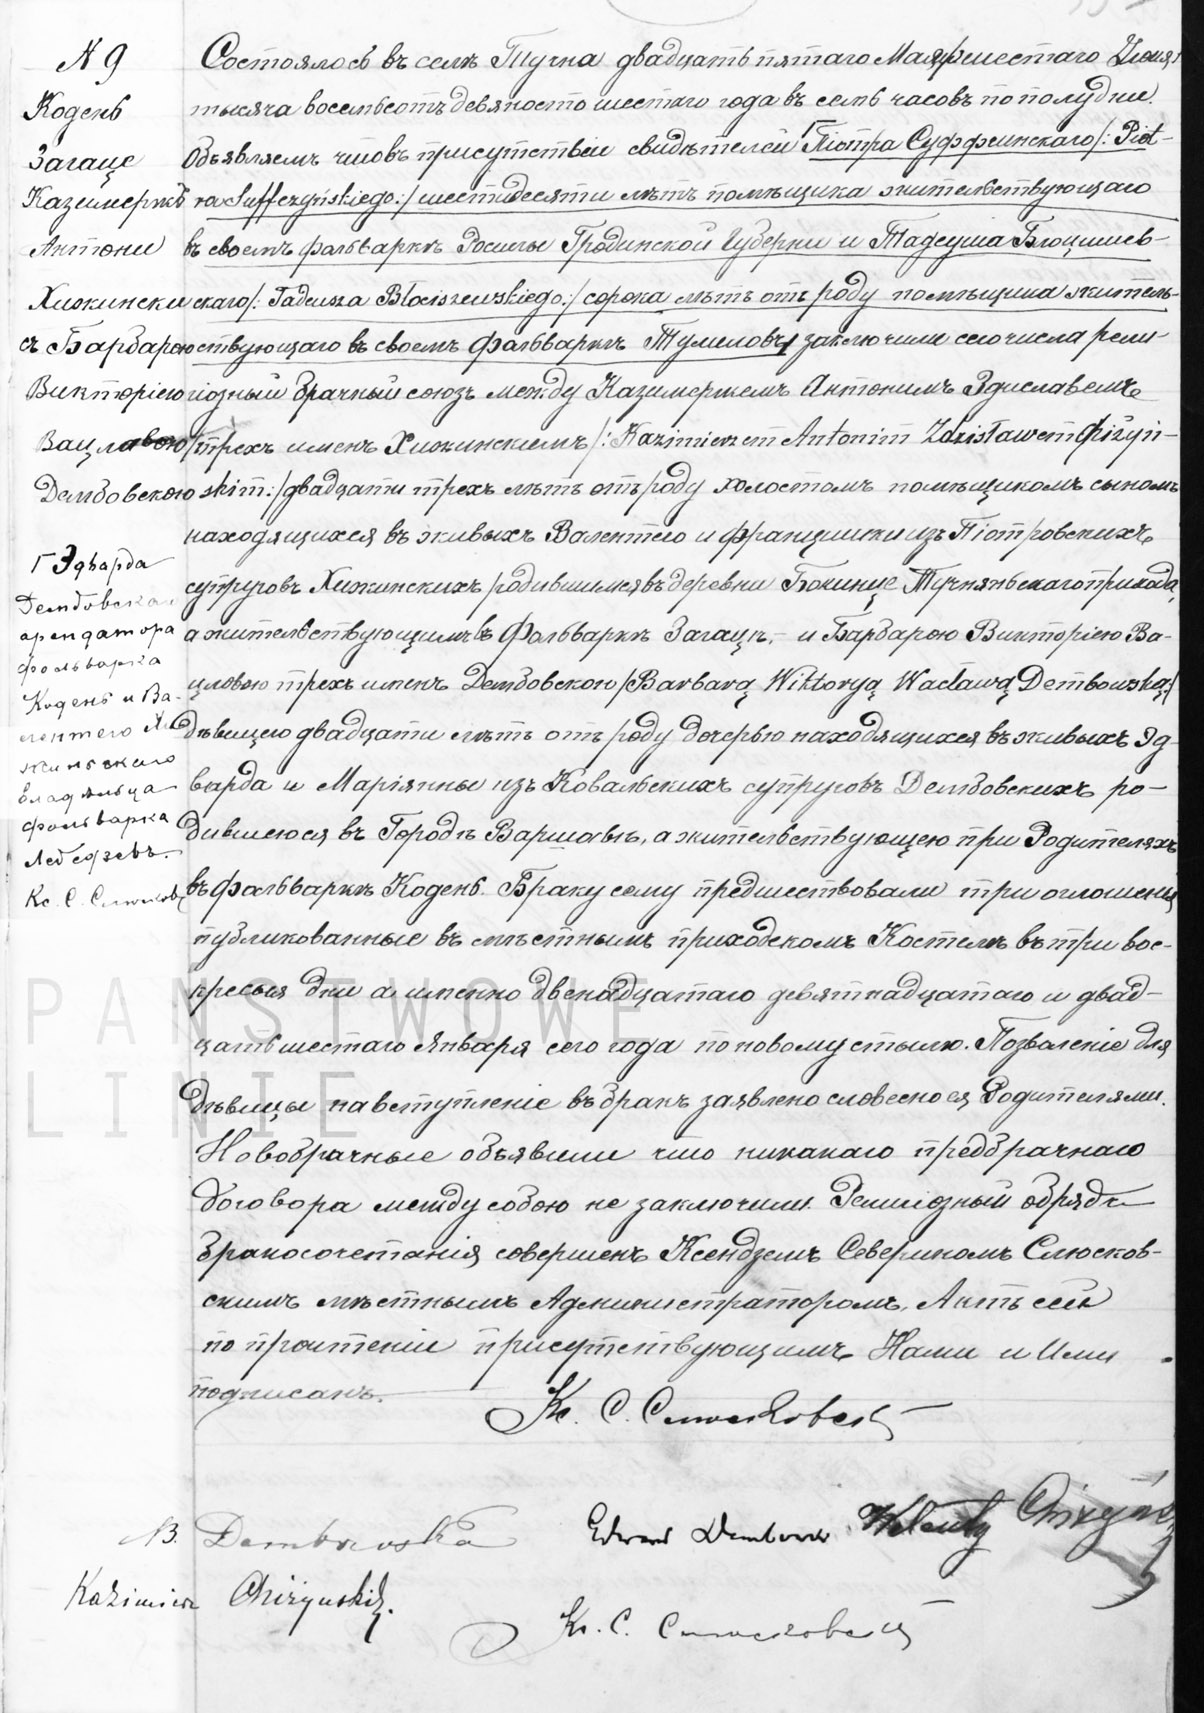 N 9
Кодень
Загаце
Казимержъ
Антони
Хижински
съ Барбарою
Викторіею
Вацлавою
Дембовскою
Г Эдварда
Дембовскаго
арендатора
фольварка
Кодень и Ва-
лентего Хи-
жинскаго
владѣльца
фольварка
Лебедзевъ.
Кс. С. Слюсковс
Состоялось въ селѣ Тучна двадцать пятаго Мая/шестаго Іюня/
тысяча восемьсотъ девяносто шестаго года въ семь часовъ пополудни.
Объявляемъ что въ присутствіи свидѣтелей Піотра Суффчинскаго/: Piot-
ra Suffczyńskiego:/ шестидесяти лѣтъ помѣщика жительствующаго
въ своемъ фольваркѣ Росилы Гродинской Губерни и Тадеуша Блоцишев-
скаго/: Tadeusza Blociszewskiego:/ сорока лѣтъ отъ роду помѣщика житель-
ствующаго въ своемъ фольваркѣ Тумиловъ/ заключили сего числа рели-
гіозный брачный союзъ между Казимержемъ Антонимъ Здиславемъ
/трехъ именъ Хижинскимъ/: Kazimierzem Antonim Zdzisławem Chiżyń-
skim:/ двадцати трехъ лѣтъ отъ роду холостомъ помѣщикомъ сыномъ
находящихся въ живыхъ Валентего и Францишки изъ Піотровскихъ
супруговъ Хижинскихъ/ родившимся въ деревни Бокинце Тучнянскаго прихода,
а жительствующимъ въ Фольваркѣ Загацѣ, - и Барбарою Викторіею Ва-
цловою трехъ именъ Дембовскою /Barbarą Wiktoryą Wacławą Dembowską:/
дѣвицею двадцати лѣтъ отъ роду дочерью находящихся въ живыхъ Эд-
варда и Маріянны изъ Ковальскихъ супруговъ Дембовскихъ ро-
дившеюся въ Городѣ Варшавѣ, а жительствующею при Родителяхъ
въ фольваркѣ Кодень. Браку сему предшествовали три оглошенія
публикованные въ мѣстнымъ приходскомъ Костелѣ въ три вос-
кресныя дни а именно двенадцатаго девятнадцатаго и двад-
цать шестаго Января сего года по новому стылю. Позволеніе для
дѣвицы на вступленіе въ бракъ заявлено словесно ея Родителями.
Новобрачные объявили что никакаго предбрачнаго
договора между собою не заключили. Религіозный обрядъ
бракосочетанія совершенъ Ксендземъ Севериномъ Слюсков-
скимъ мѣстнымъ Администраторомъ. Актъ сей
по прочтеніи присутствующимъ Нами и Ими
подписанъ.
Кс. С. Слюсковскі
B. Dembowska Edward Dembowski Walenty Chiżyński
Kazimierz Chiżyński.
Кс. С. Слюсковскі
PAŃSTWOWE
LINIE